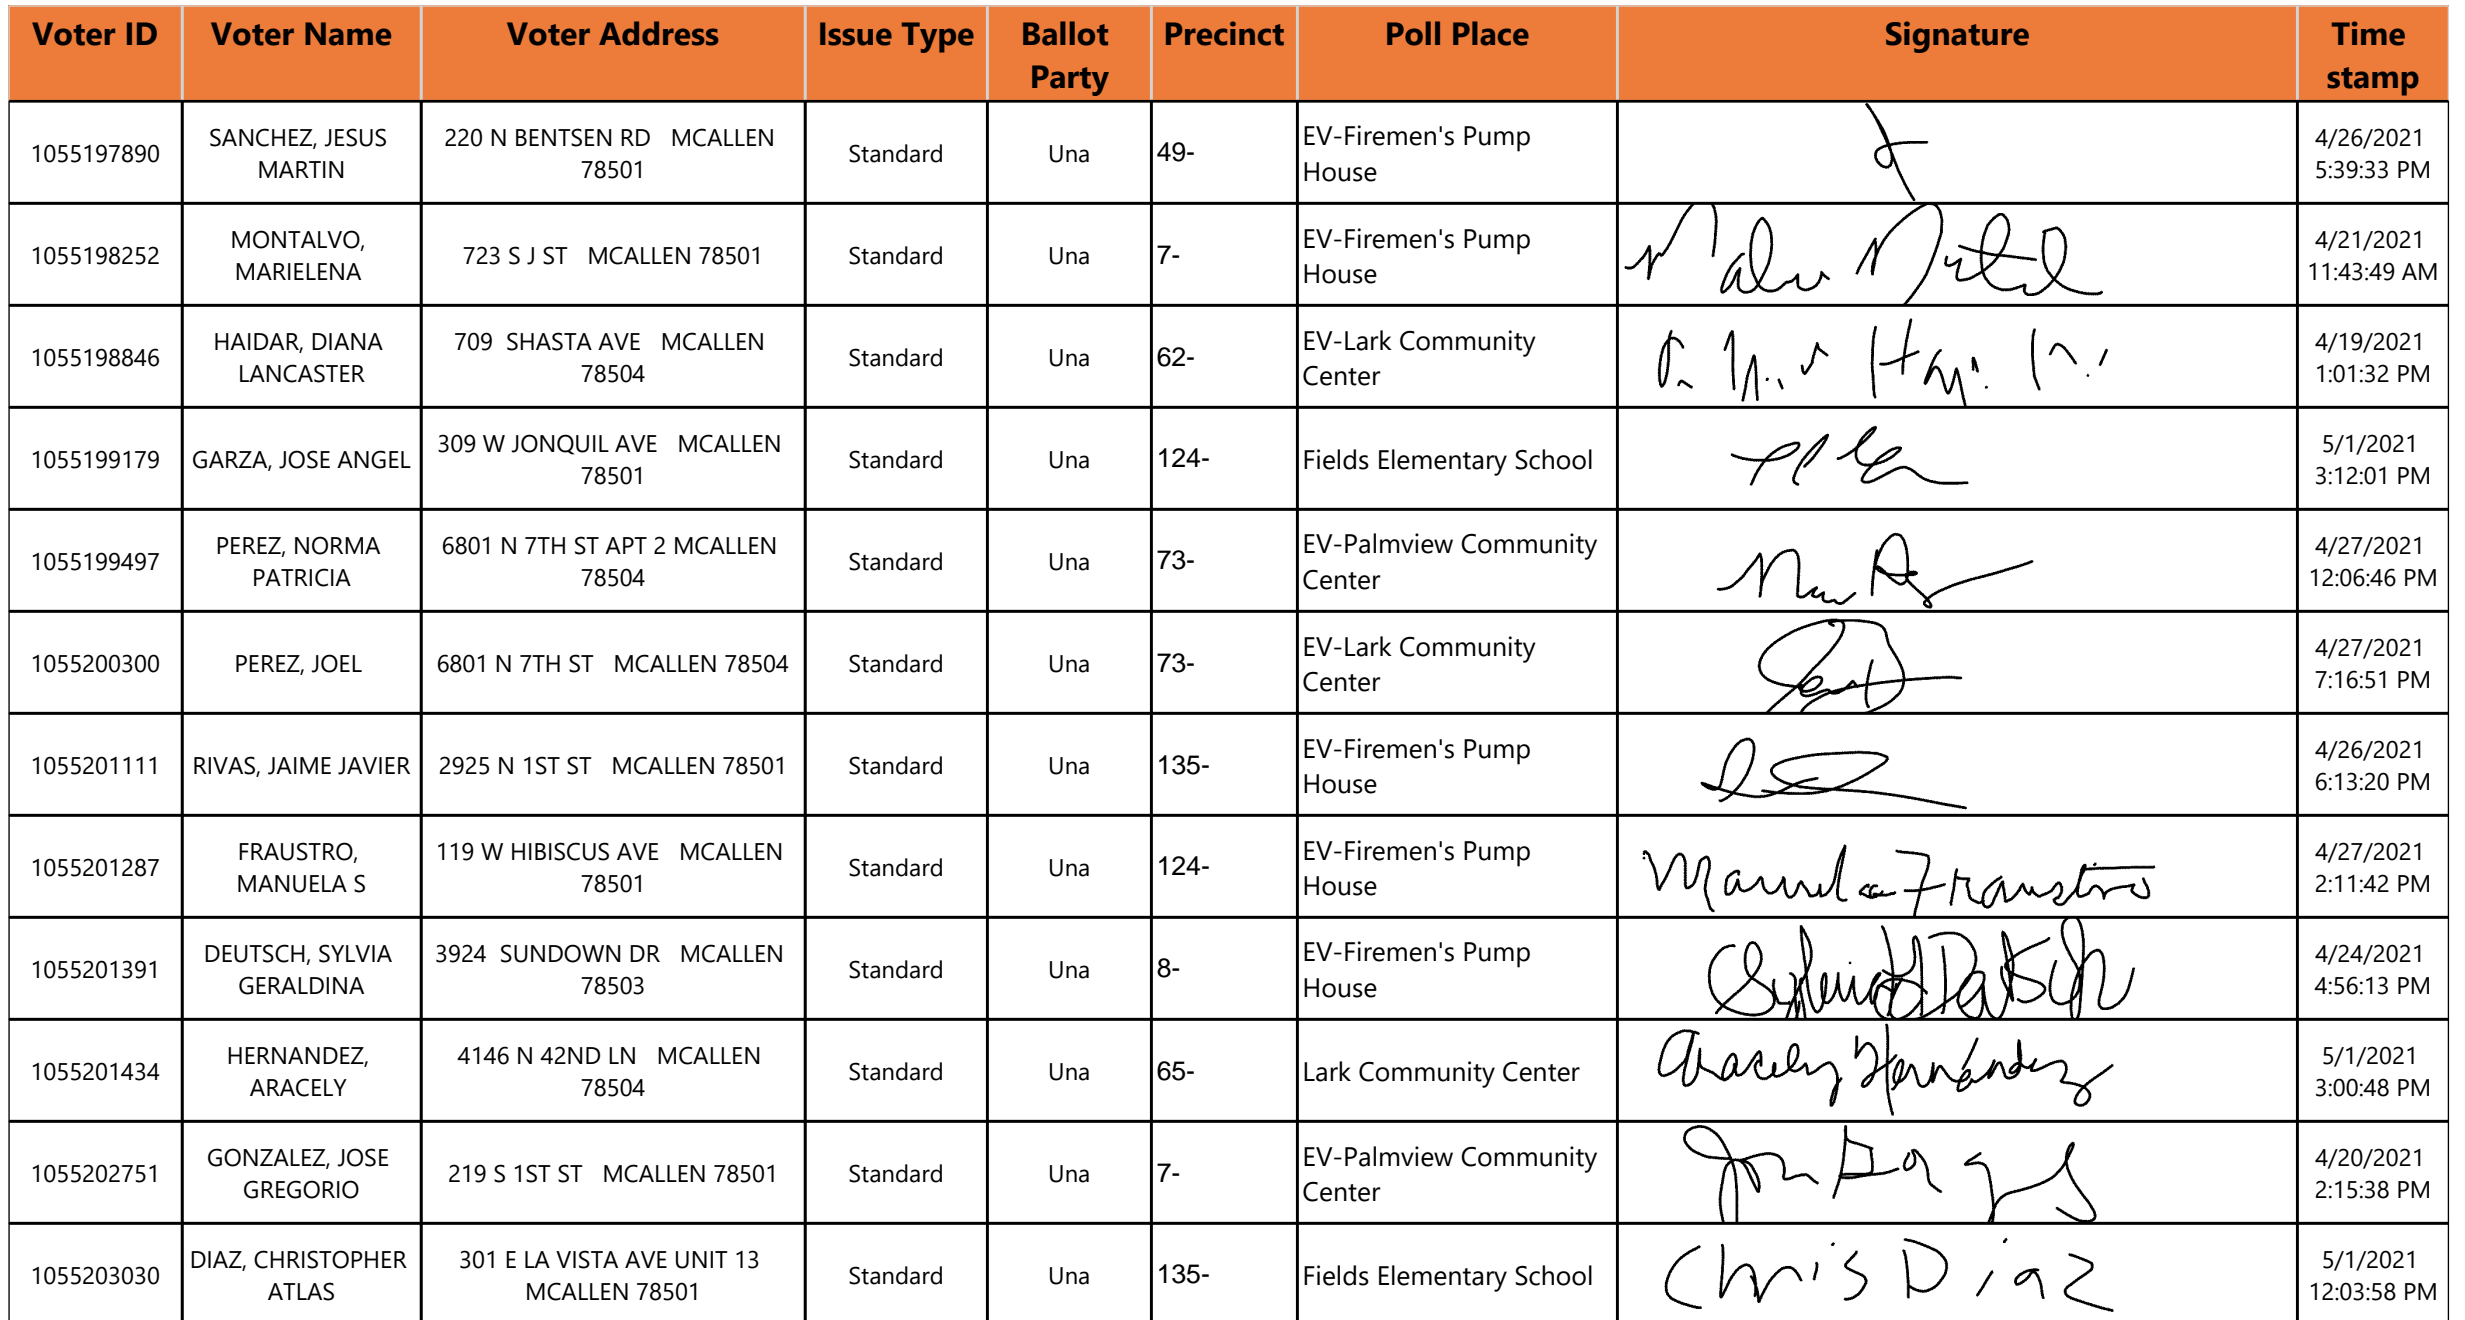 Voter ID Voter Name Voter Address Issue Type Ballot Party Precinct Poll Place Signature Time stamp
1055197890 SANCHEZ, JESUS MARTIN 220 N BENTSEN RD MCALLEN 78501 Standard Una 49- EV-Firemen's Pump House 4/26/2021 5:39:33 PM
1055198252 MONTALVO, MARIELENA 723 S J ST MCALLEN 78501 Standard Una 7- EV-Firemen's Pump House 4/21/2021 11:43:49 AM
1055198846 HAIDAR, DIANA LANCASTER 709 SHASTA AVE MCALLEN 78504 Standard Una 62- EV-Lark Community Center 4/19/2021 1:01:32 PM
1055199179 GARZA, JOSE ANGEL 309 W JONQUIL AVE MCALLEN 78501 Standard Una 124- Fields Elementary School 5/1/2021 3:12:01 PM
1055199497 PEREZ, NORMA PATRICIA 6801 N 7TH ST APT 2 MCALLEN 78504 Standard Una 73- EV-Palmview Community Center 4/27/2021 12:06:46 PM
1055200300 PEREZ, JOEL 6801 N 7TH ST MCALLEN 78504 Standard Una 73- EV-Lark Community Center 4/27/2021 7:16:51 PM
1055201111 RIVAS, JAIME JAVIER 2925 N 1ST ST MCALLEN 78501 Standard Una 135- EV-Firemen's Pump House 4/26/2021 6:13:20 PM
1055201287 FRAUSTRO, MANUELA S 119 W HIBISCUS AVE MCALLEN 78501 Standard Una 124- EV-Firemen's Pump House Manuela Fraustro 4/27/2021 2:11:42 PM
1055201391 DEUTSCH, SYLVIA GERALDINA 3924 SUNDOWN DR MCALLEN 78503 Standard Una 8- EV-Firemen's Pump House Sylvia G Deutsch 4/24/2021 4:56:13 PM
1055201434 HERNANDEZ, ARACELY 4146 N 42ND LN MCALLEN 78504 Standard Una 65- Lark Community Center Aracely Hernández 5/1/2021 3:00:48 PM
1055202751 GONZALEZ, JOSE GREGORIO 219 S 1ST ST MCALLEN 78501 Standard Una 7- EV-Palmview Community Center 4/20/2021 2:15:38 PM
1055203030 DIAZ, CHRISTOPHER ATLAS 301 E LA VISTA AVE UNIT 13 MCALLEN 78501 Standard Una 135- Fields Elementary School Chris Diaz 5/1/2021 12:03:58 PM